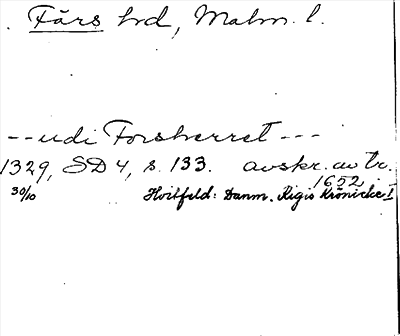 . Färs hrd, Malm. l.
-- udi Forsherret ---
1329, SD 4, s. 133. avskr. av tr.
1652
30/10 Hvitfeld: Danm. Rigis Krönicke I